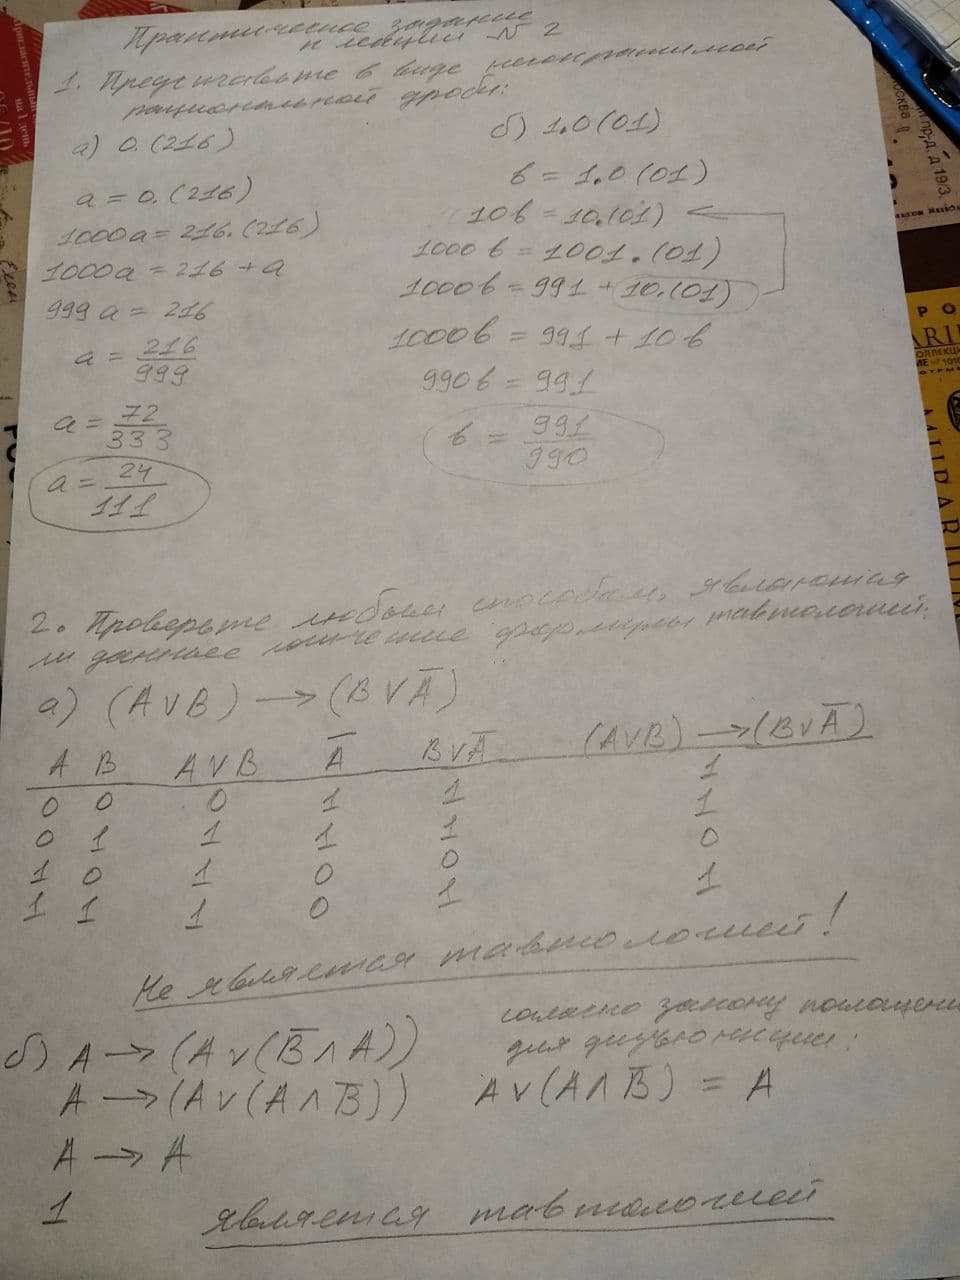 Практическое задание
к лекции №2
1. Представьте в виде несократимой
рациональной дроби:
а) 0.(216)
a = 0.(216)
1000a = 216.(216)
1000a = 216 + a
999a = 216
a = 216/999
a = 72/333
a = 24/111
б) 1.0(01)
b = 1.0(01)
10b = 10.(01)
1000b = 1001.(01)
1000b = 991 + 10.(01)
1000b = 991 + 10b
990b = 991
b = 991/990
2. Проверьте любым способом, являются
ли данные логические формулы тавтологией:
а) (A ∨ B) → (B ∨ A̅)
A B A ∨ B A̅ B ∨ A̅ (A ∨ B) → (B ∨ A̅)
0 0 0 1 1 1
0 1 1 1 1 1
1 0 1 0 0 0
1 1 1 0 1 1
Не является тавтологией!
б) A → (A ∨ (B̅ ∧ A))
A → (A ∨ (A ∧ B̅))
A → A
1
является тавтологией
согласно закону поглощени
для дизъюнкции:
A ∨ (A ∧ B̅) = A
МОСКВА
пр-д, д 19/3.
на 1 день